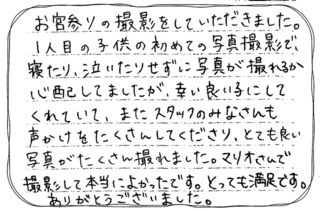 お宮参りの撮影をしていただきました。
1人目の子供の初めての写真撮影で、
寝たり、泣いたりせずに写真が撮れるか
心配してましたが、幸い良い子にして
くれていて、またスタッフのみなさんも
声かけをたくさんしてくださり、とても良い
写真がたくさん撮れました。マリオさんで
撮影して本当によかったです。とっても満足です。
ありがとうございました。